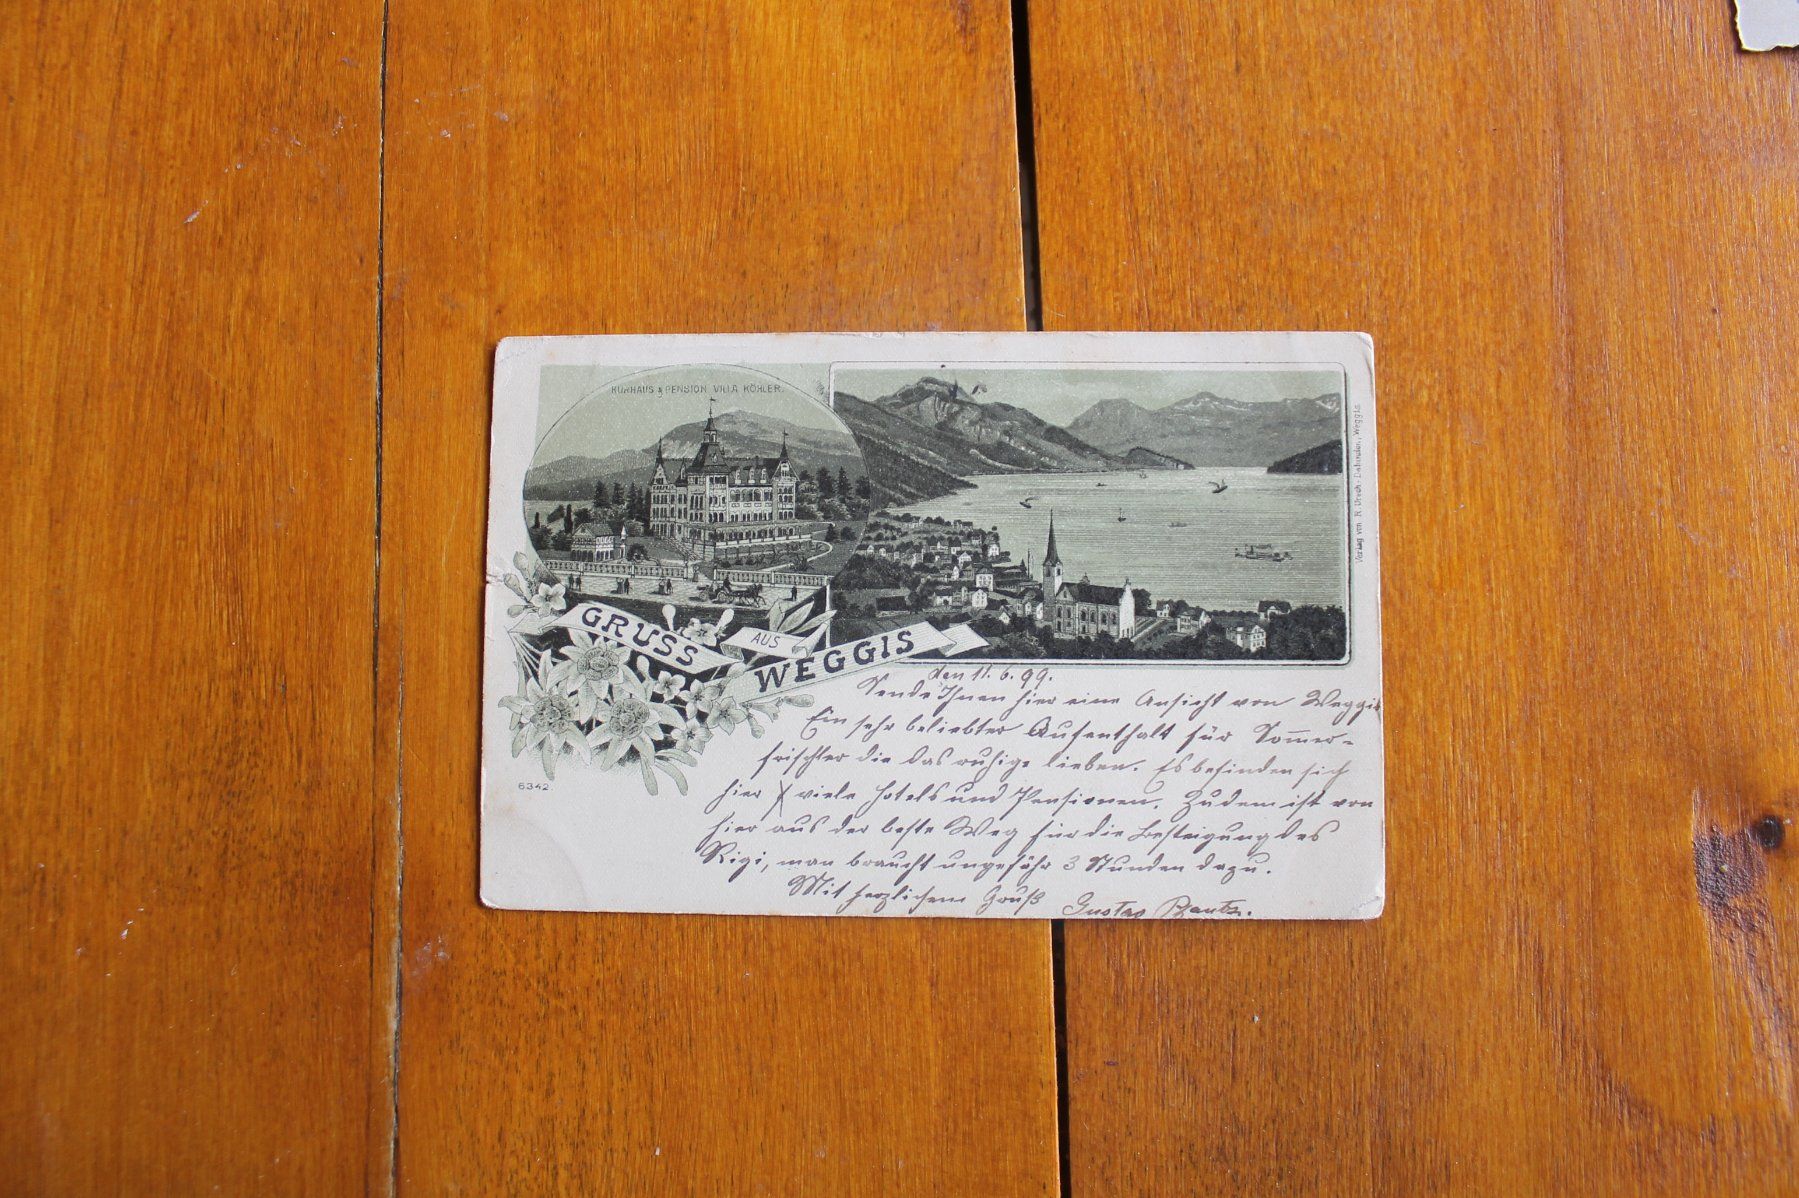 KURHAUS & PENSION VILLA KÖHLER.
GRUSS AUS WEGGIS
Verlag von R. Urech-Dahinden, Weggis
6342
den 11. 6. 99.
Sende Ihnen hier eine Ansicht von Weggis
Ein sehr beliebter Aufenthalt für Sommer-
frischler die das ruhige lieben. Es befinden sich
hier viele Hotels und Pensionen. Zudem ist von
hier aus der beste Weg für die Besteigung des
Rigi, man braucht ungefähr 3 Stunden dazu.
Mit herzlichem Gruß
Gustav